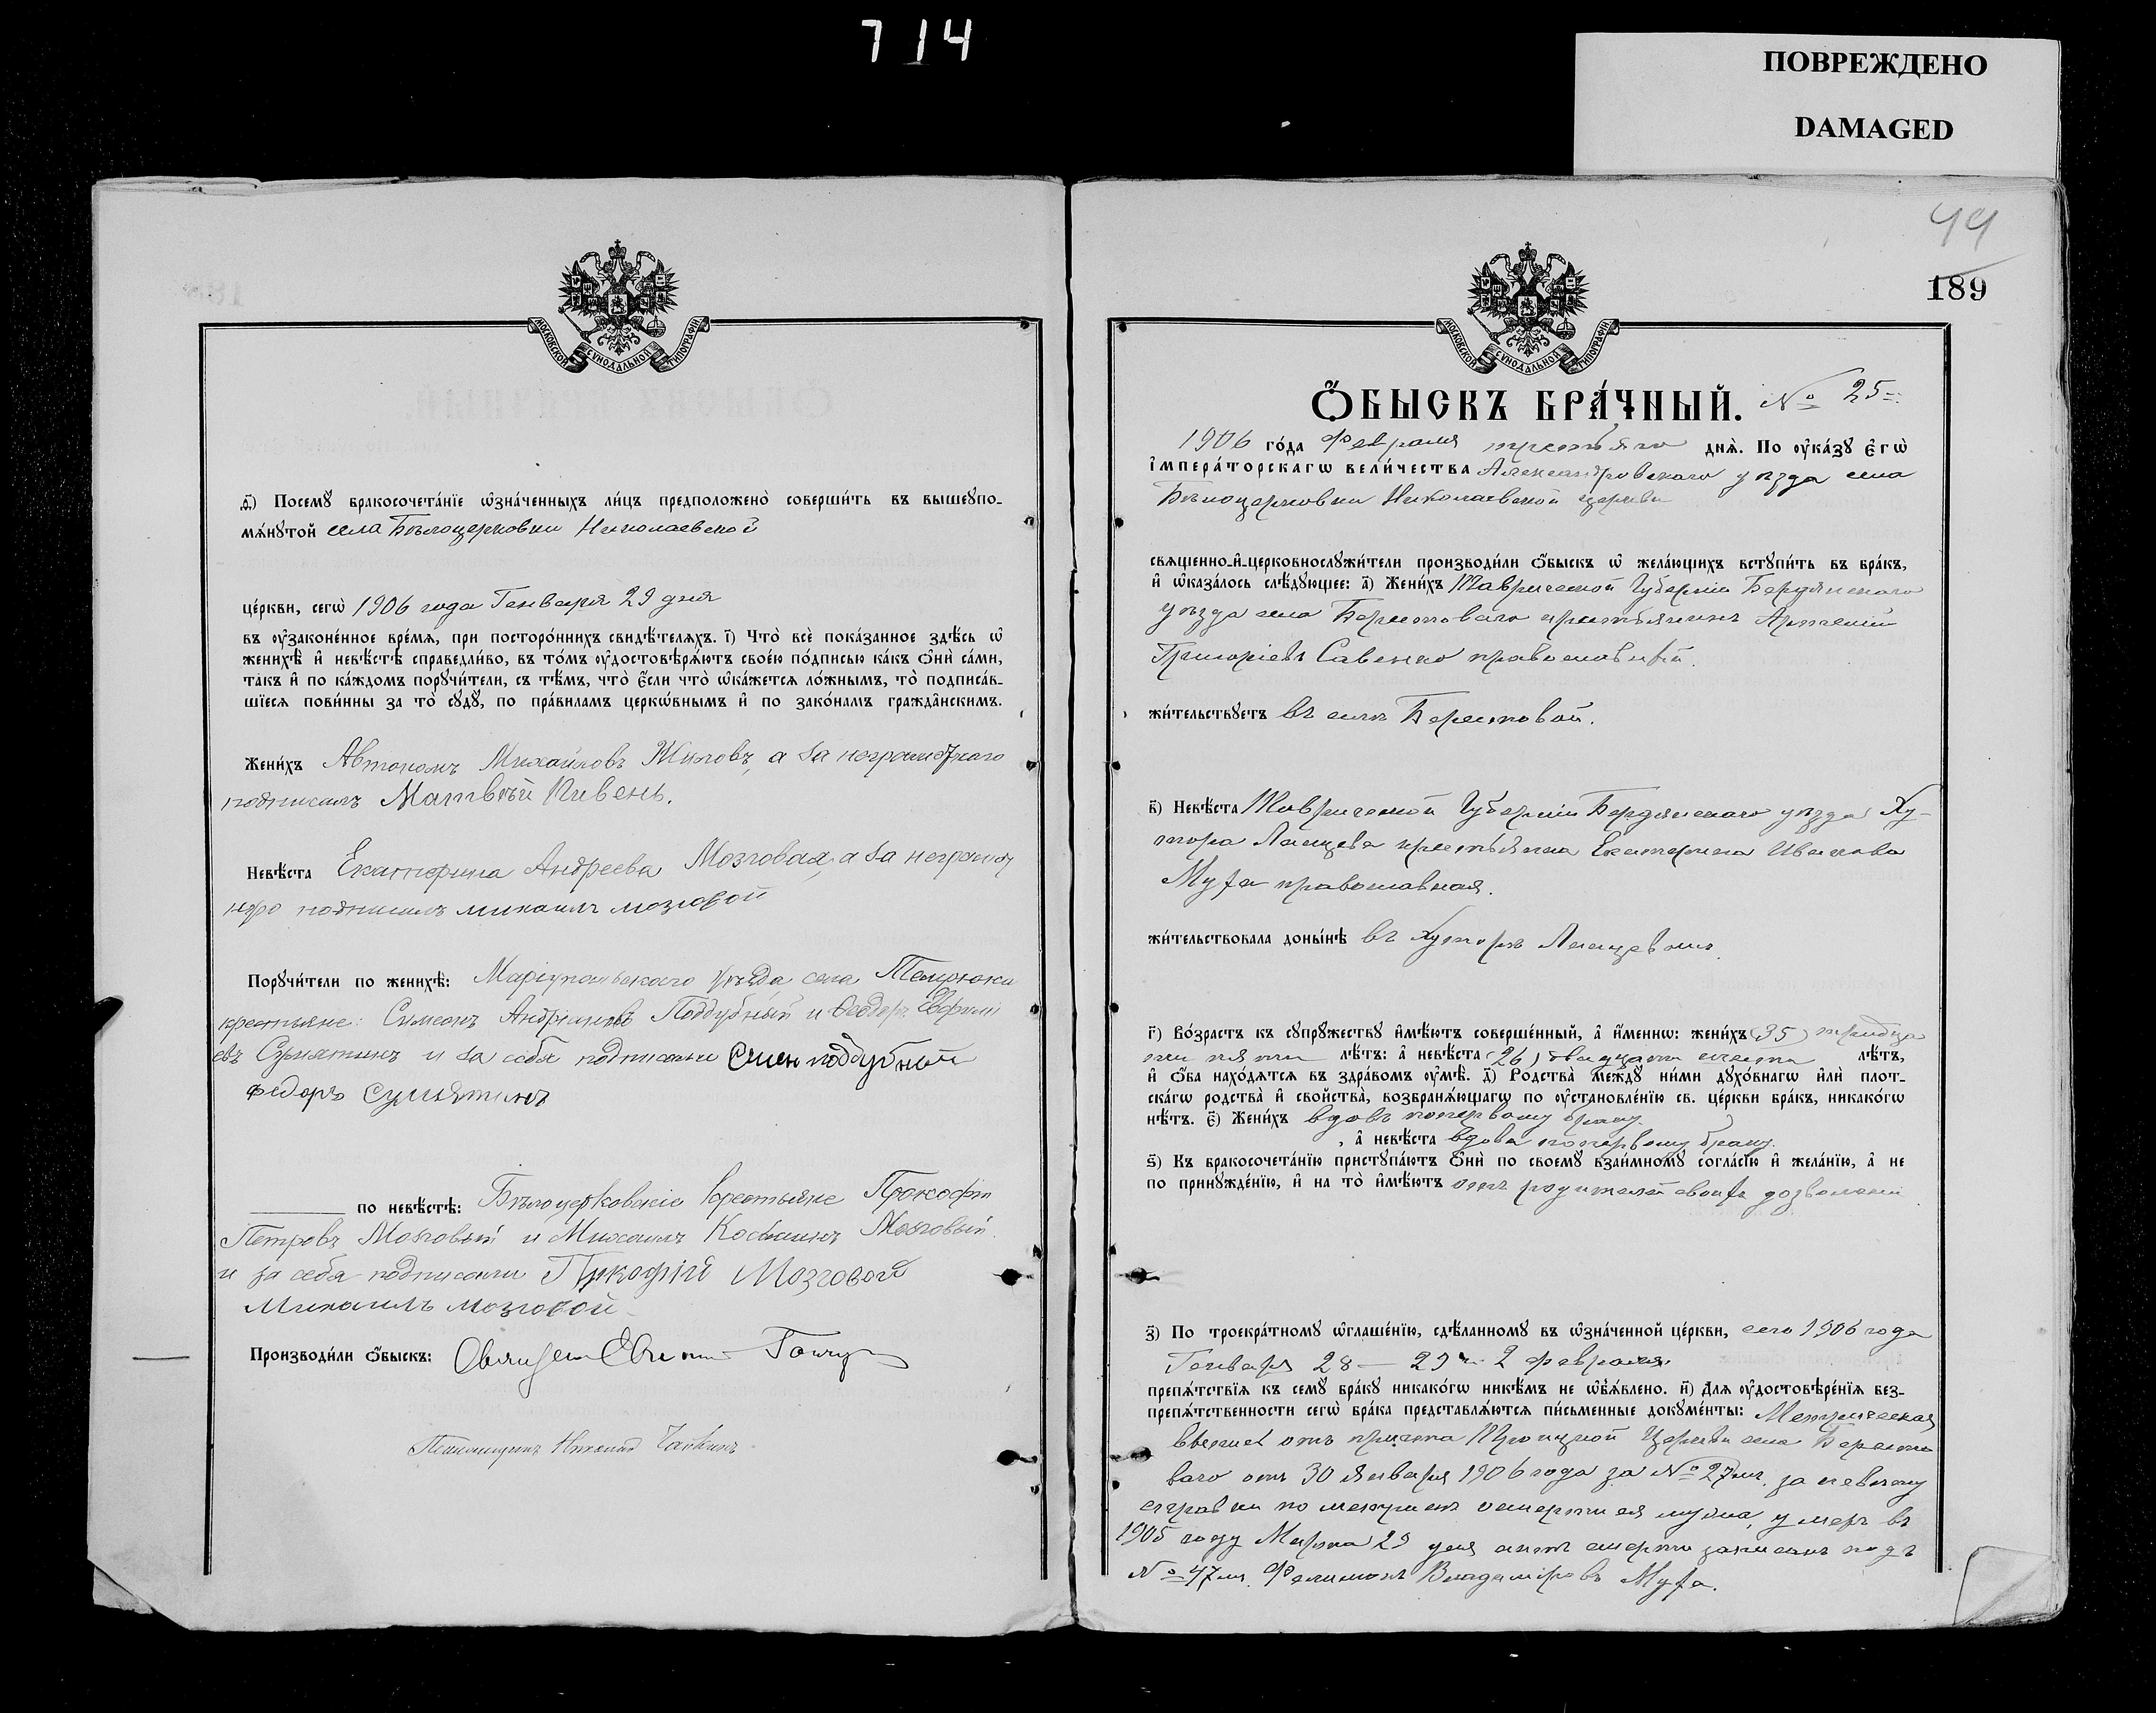 714
ПОВРЕЖДЕНО
DAMAGED
МОСКОВСКОЙ СѴНОДАЛЬНОЙ ТИПОГРАФІИ
Посемꙋ̀ бракосочета́нїе ѡ҆зна́ченныхъ ли́цъ предположено̀ соверши́ть въ вышеꙋпо-
мѧ́нꙋтой села Бѣлоцерковки Николаевской
це́ркви, сегѡ̀ 1906 года Генваря 29 дня
въ ᲂу҆зако́не́нное вре́мѧ, при посторо́ннихъ свидѣ́телѧхъ. і҃) Что̀ всѐ пока́занное здѣ́сь ѡ҆
женихѣ̀ и҆ невѣ́стѣ справедли́во, въ то́мъ ᲂу҆достовѣрѧ́ютъ свое́ю по́дписью ка́къ ѻ҆нѝ са́ми,
та́къ и҆ по ка́ждомъ порꙋчи́тели, съ тѣ́мъ, что̀ є҆́сли что̀ ѡ҆ка́жетсѧ ло́жнымъ, то̀ подписа́в-
шїесѧ пови́нны за то̀ сꙋдꙋ̀, по пра́виламъ церко́внымъ и҆ по зако́намъ гражда́нскимъ.
Жени́хъ Автономъ Михайловъ Жиловъ, а за неграмотнаго
подписалъ Матвѣй Пивень.
Невѣ́ста Екатерина Андреева Мозговая, а за неграмот
ную подписалъ михаилъ мозговой
Порꙋчи́тели по женихѣ̀: Маріупольскаго уѣзда села Темрюка
крестьяне: Симеонъ Андріановъ Поддубный и Ѳеодоръ Евфимі
евъ Сумятинъ и за себя подписали Смен поддубной
федоръ Сумятинъ
по невѣ́стѣ: Бѣлоцерковскіе крестьяне Прокофій
Петровъ Мозговый и Михаилъ Косминъ Мозговый
и за себя подписали Пркофій Мозговой
Михаилъ мозговой
Производи́ли ѻ҆́быскъ:
44
189
МОСКОВСКОЙ СѴНОДАЛЬНОЙ ТИПОГРАФІИ
Ѻ҆́БЫСКЪ БРА́ЧНЫЙ. № 25
1906 го́да Февраля третьяго днѧ̀. По ᲂу҆ка́зꙋ Є҆гѡ̀
і҆мпера́торскагѡ вели́чества Александровскаго уѣзда села
Бѣлоцерковки Николаевской церкви
свѧще́нно-и҆-церковнослꙋжи́тели производи́ли ѻ҆́быскъ ѡ҆ жела́ющихъ встꙋпи́ть въ бра́къ,
и҆ ѡ҆каза́лось слѣ́дꙋющее: а҃) Жени́хъ Таврической Губерніи Бердянскаго
уѣзда села Берестоваго крестьянинъ Артемій
Григоріевъ Савенко православный.
жи́тельствꙋетъ въ селѣ Берестовой.
в҃) Невѣ́ста Таврической Губерніи Бердянскаго уѣзда Ху-
тора Ланцева крестьянка Екатерина Иванова
Муха православная.
жи́тельствовала доны́нѣ въ Хуторѣ Ланцевомъ.
г҃) Во́зрастъ къ сꙋпрꙋ́жествꙋ и҆мѣ́ютъ соверше́нный, а҆ и҆́меннѡ: жени́хъ (35) тридца
ти пяти лѣ́тъ: а҆ невѣ́ста (26) двадцати шести лѣ́тъ,
и҆ ѻ҆́ба нахо́дѧтсѧ въ здра́вомъ ᲂу҆мѣ̀. д҃) Родства̀ междꙋ̀ ни́ми дꙋхо́внагѡ и҆лѝ пло́т-
скагѡ родства̀ и҆ сво́йства, возбранѧ́ющагѡ по ᲂу҆становле́нїю св. це́ркви бра́къ, никако́гѡ
нѣ́тъ. є҃) Жени́хъ вдовъ поперьвому браку.
, а҆ невѣ́ста вдова поперьвому браку.
ѕ҃) Къ бракосочета́нїю пристꙋпа́ютъ ѻ҆нѝ по своемꙋ̀ взаи́мномꙋ согла́сїю и҆ жела́нїю, а҆ не
по принꙋжде́нїю, и҆ на то̀ и҆мѣ́ютъ отъ родителей своихъ дозволеніе
з҃) По троекра́тномꙋ ѡ҆глаше́нїю, сдѣ́ланномꙋ въ ѡ҆зна́ченной це́ркви, сего 1906 года
Генваря 28 — 29 и 2 февраля
препѧ́тствїѧ къ семꙋ̀ бра́кꙋ никако́гѡ никѣ́мъ не ѡ҆б̾ѧ́влено. и҃) Длѧ ᲂу҆достовѣре́нїѧ без-
препѧ́тственности сегѡ̀ бра́ка представлѧ́ютсѧ пи́сьменные докꙋме́нты: Метрическая
отъ причта Троицкой Церкви села Бересто
ваго отъ 30 января 1906 года за № 27мъ. за невѣсту
справки по смерти ея мужа, умеръ въ
1905 году Марта 29 дня актъ смерти записанъ подъ
№ 47мъ. Филимонъ Владиміровъ Муха.